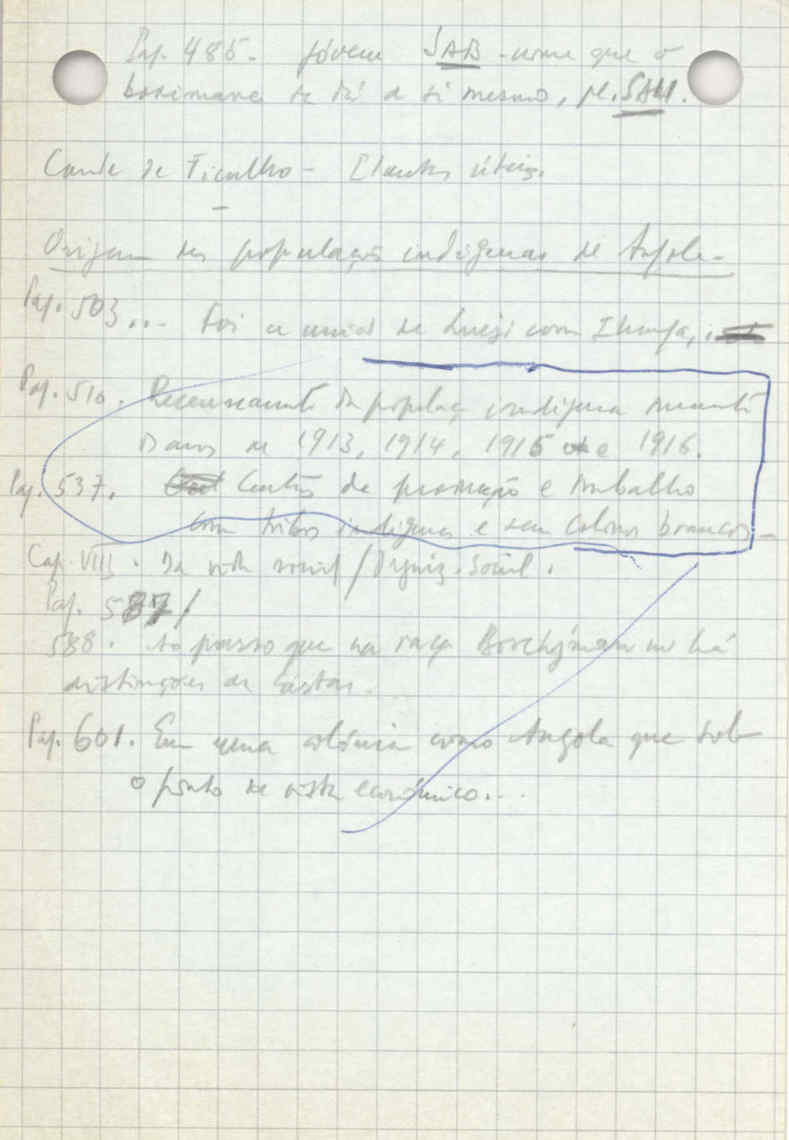 Pag. 485. Jóvem SAB - nome que o
boximane se dá a si mesmo, pl. SAN.
Conde de Ficalho - Plantas úteis.
Origem das populações indígenas de Angola -
Pag. 503... Foi a união de Lueji com Ilunga,
Pag. 510. Recenseamento da populaç indígena durante
anos de 1913, 1914, 1915 e 1916.
Pag. 537. Centros de produção e trabalho
com tribos indígenas e seus colonos brancos -
Cap. VIII. Da vida social / Organiz. Social.
Pag. 587/
588. Ao passo que na raça Boschjman não há
distinções de castas.
Pag. 601. Em uma colónia como Angola que sob
o ponto de vista económico...